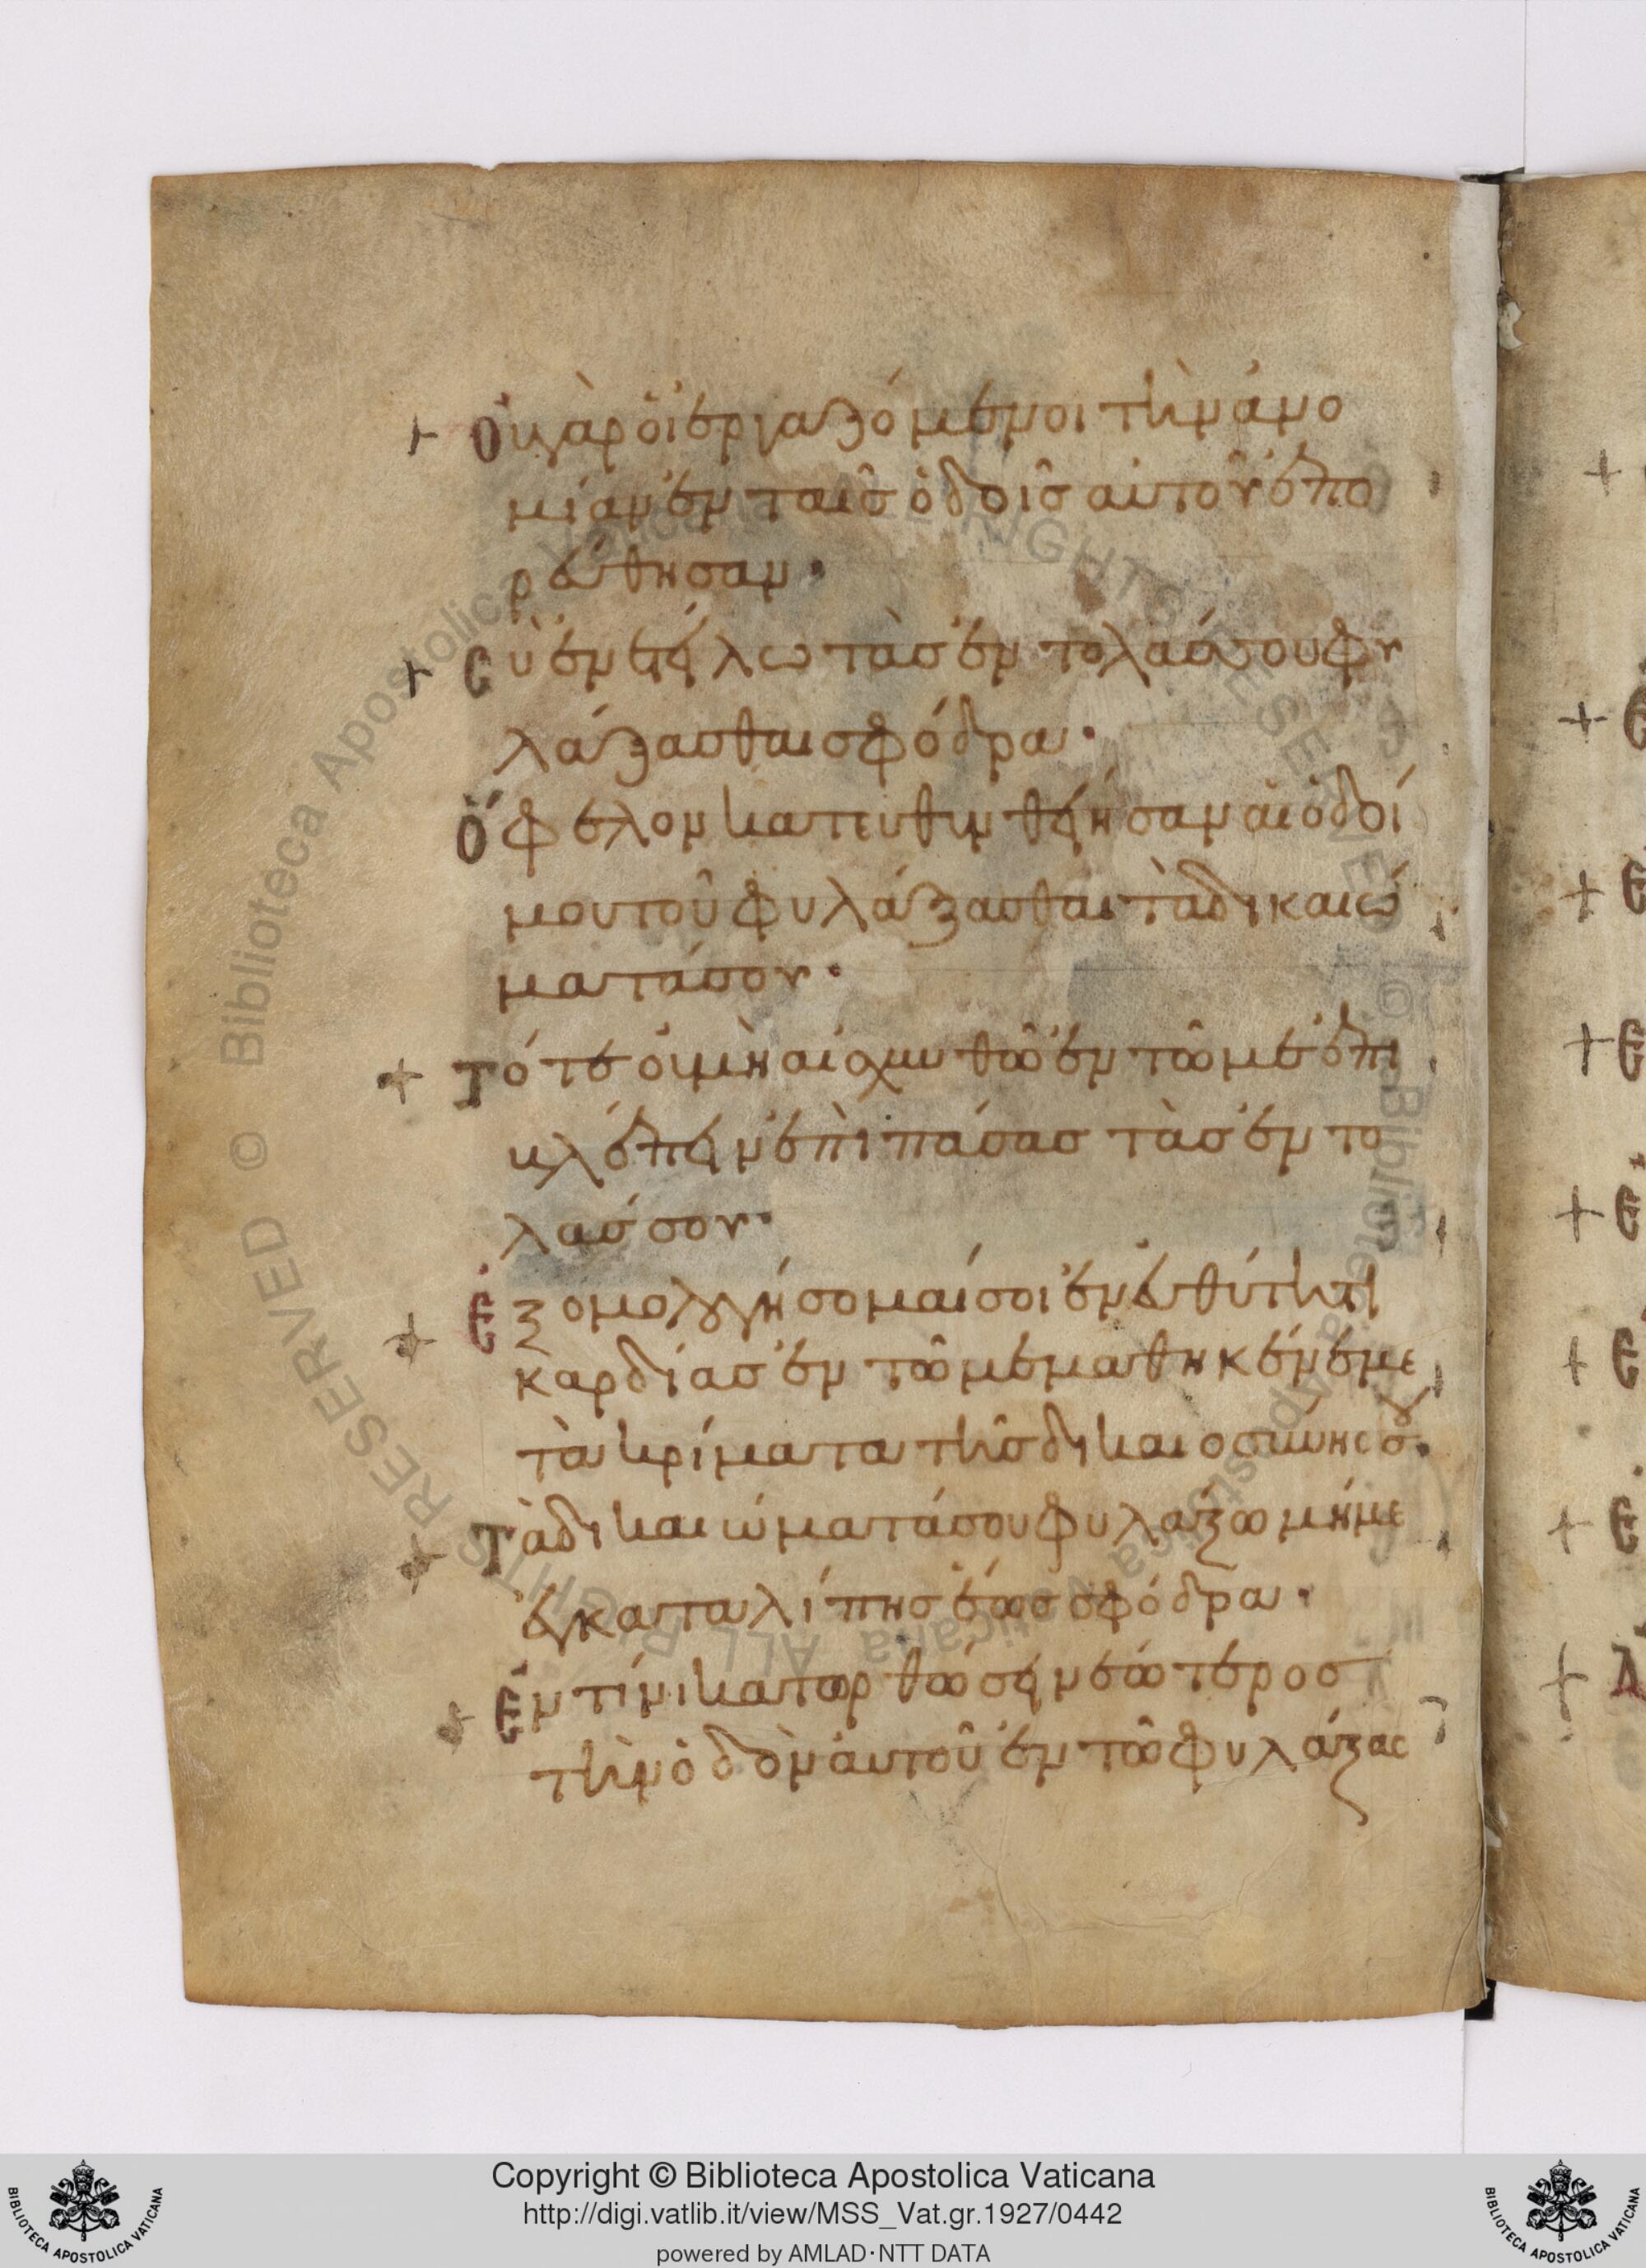 + Οὐ γὰρ ὁι ἐργαζόμενοι τὴν ἀνο
μίαν ἐν ταῖς ὁδοῖς αὐτοῦ ἐπο
ρεύθησαν·
+ Cὺ ἐνετείλω τὰς ἐντολάς σου φυ
λάξασθαι σφόδρα·
Ὄφελον κατευθυνθείησαν αἱ ὁδοί
μου τοῦ φυλάξασθαι τὰ δικαιώ
ματά σου·
+ Τότε οὐ μὴ αἰσχυνθῶ ἐν τῶ με ἐπι
βλέπειν ἐπὶ πάσας τὰς ἐντο
λάς σου·
+ Ἐξομολογήσομαί σοι ἐν εὐθύτητι
καρδίας ἐν τῶ μεμαθηκέναι με
τὰ κρίματα τῆς δικαιοσύνης σου·
+ Τὰ δικαιώματά σου φυλάξω μή με
ἐγκαταλίπης ἕως σφόδρα·
+ Ἐν τίνι κατορθώσει νεώτερος
τὴν ὁδὸν αὐτοῦ ἐν τῶ φυλάξασ
Copyright © Biblioteca Apostolica Vaticana
http://digi.vatlib.it/view/MSS_Vat.gr.1927/0442
powered by AMLAD·NTT DATA
BIBLIOTECA APOSTOLICA VATICANA
BIBLIOTECA APOSTOLICA VATICANA